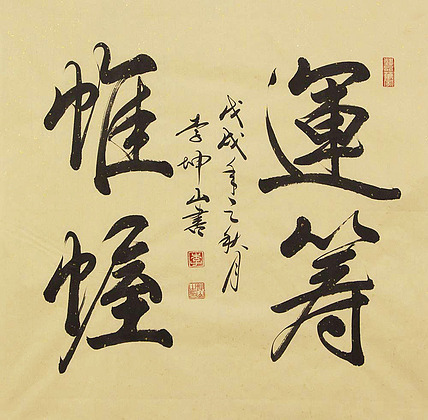 運筹
帷幄
戊戌年之秋月
李坤山書